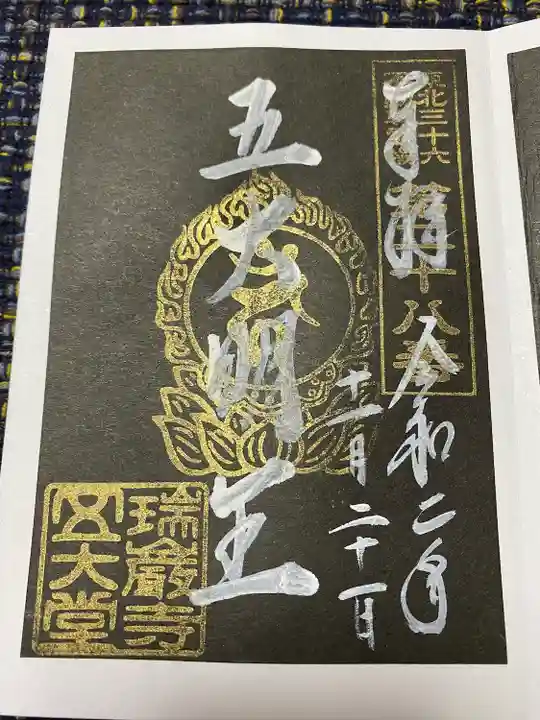 奉拝
東北三十六
十八番
令和二年
十一月二十一日
五大明王
瑞巌寺
五大堂